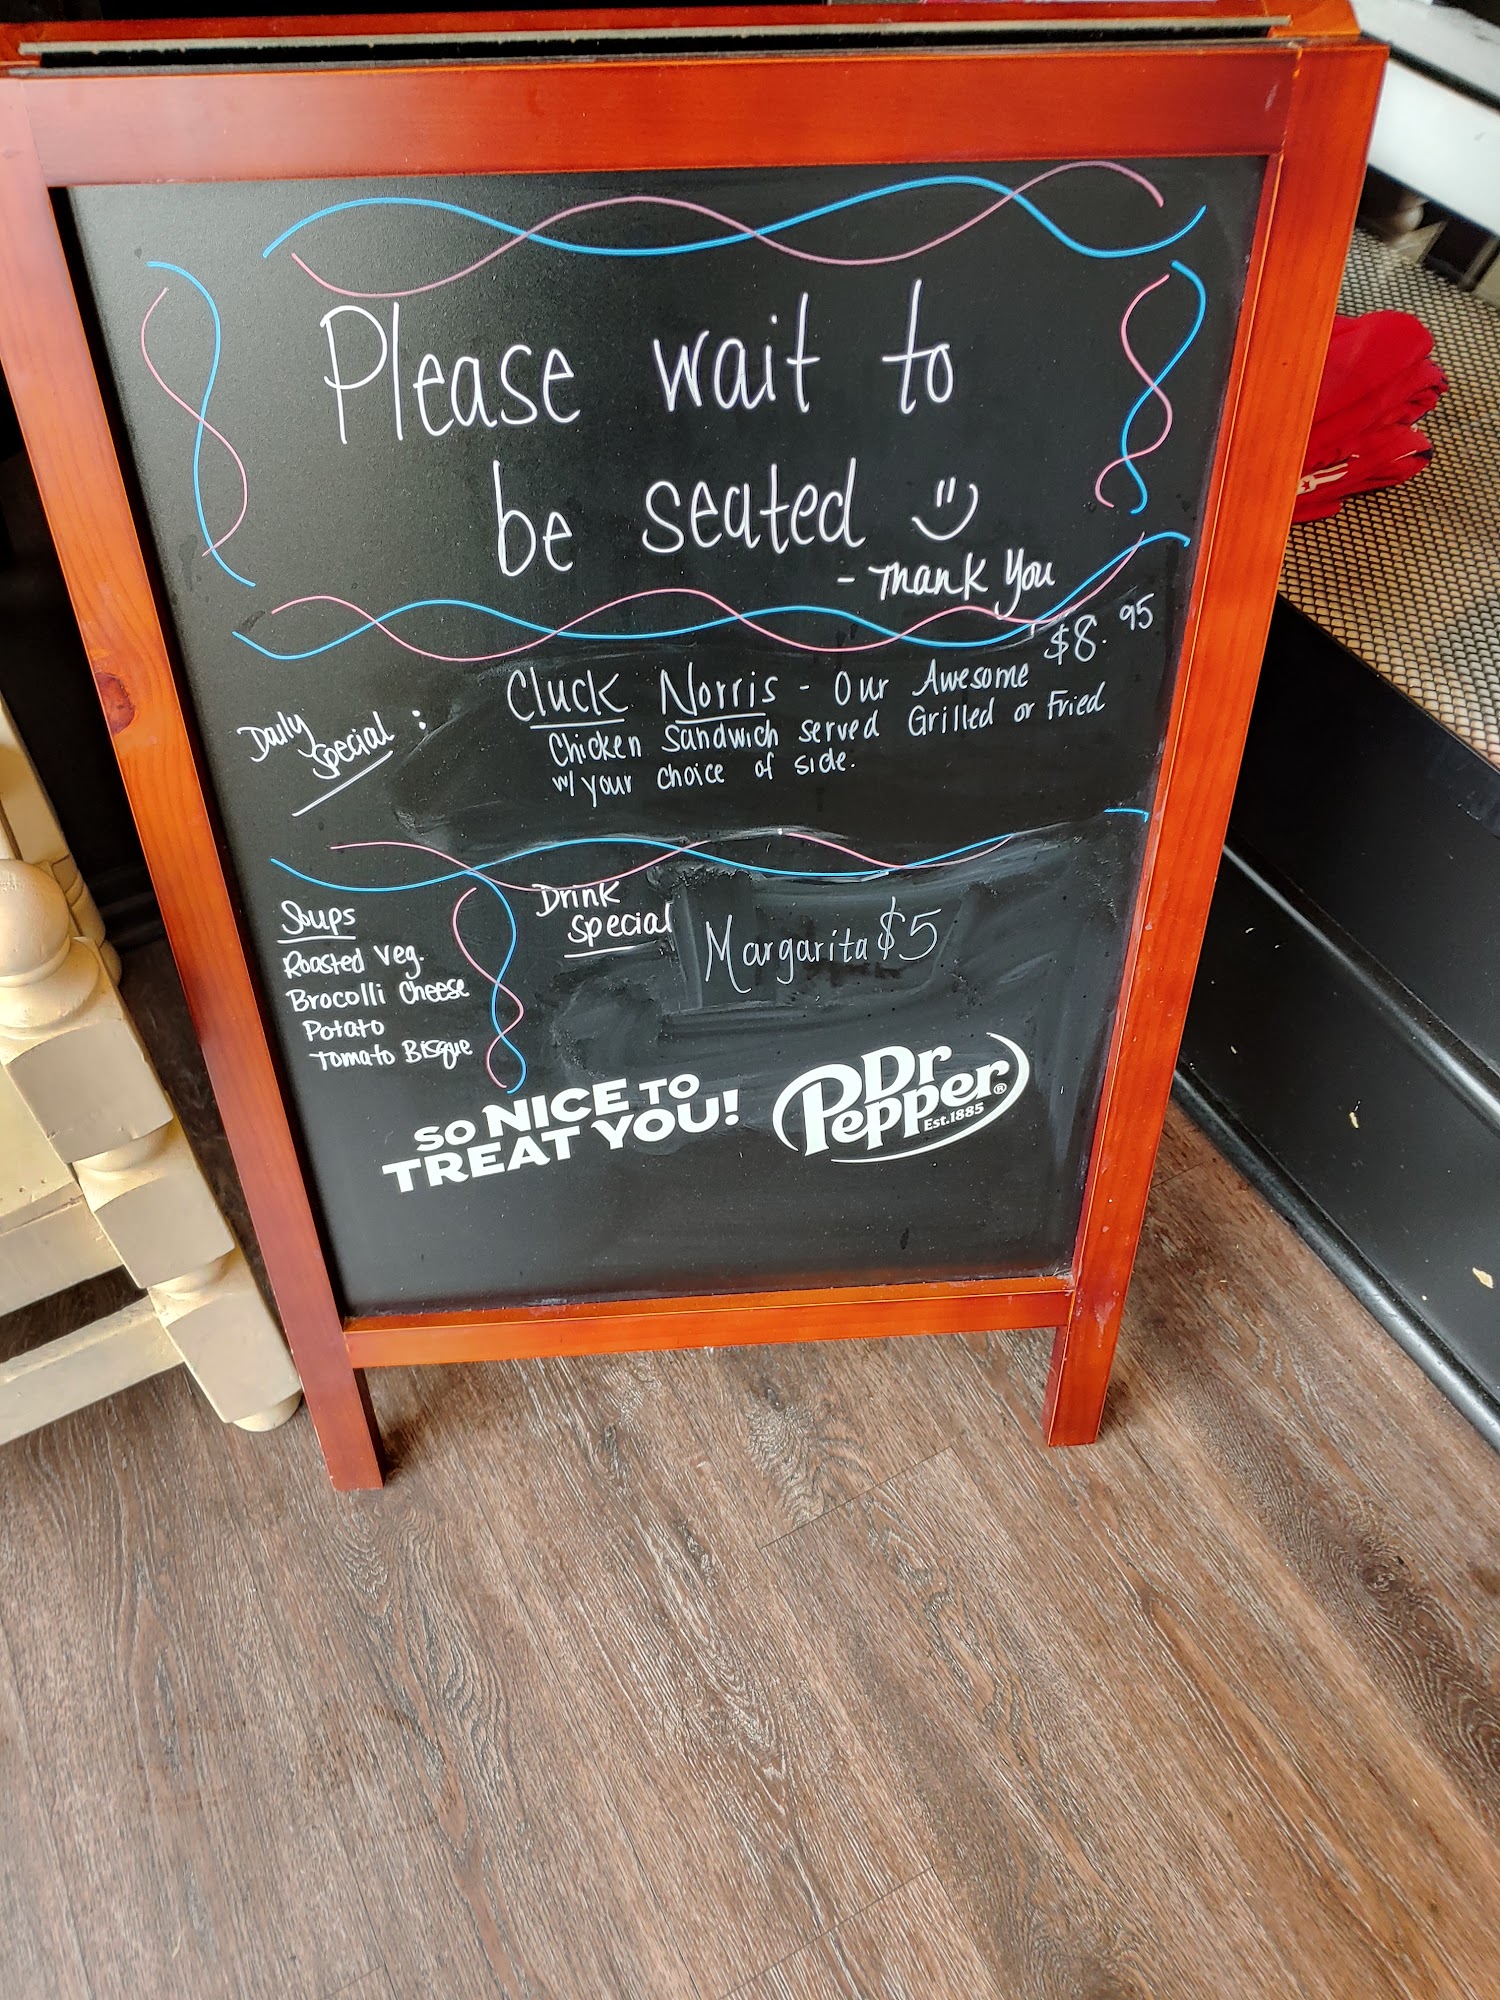 Please wait to
be seated
- Thank You
$8.95
Daily
Special:
Cluck Norris - Our Awesome
Chicken Sandwich served Grilled or Fried
w/ your choice of side.
Soups
Roasted Veg.
Brocolli Cheese
Potato
Tomato Bisque
Drink
Special
Margarita $5
SO NICE TO
TREAT YOU!
Dr
Pepper®
Est.1885